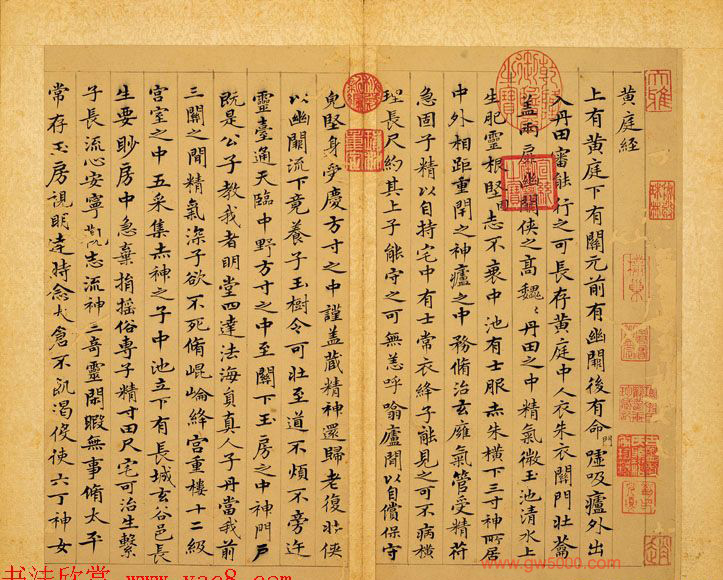 黄庭経
上有黄庭下有關元前有幽闕後有命門噓吸廬外出
入丹田審能行之可長存黄庭中人衣朱衣關門壮蘥
盖兩扉幽闕俠之高魏〻丹田之中精氣微玉池清水上
生肥靈根堅固志不衰中池有士服赤朱横下三寸神所居
中外相距重閇之神廬之中務脩治玄㢕氣管受精符
急固子精以自持宅中有士常衣絳子能見之可不病横
理長尺約其上子能守之可無恙呼噏廬間以自償保守
皃堅身受慶方寸之中謹盖蔵精神還歸老復壮俠
以幽闕流下竟養子玉樹令可壮至道不煩不旁迕
靈臺通天臨中野方寸之中至關下玉房之中神門戶
既是公子教我者明堂四達法海員真人子丹當我前
三關之間精氣深子欲不死脩崐崘絳宫重樓十二級
宫室之中五采集赤神之子中池立下有長城玄谷邑長
生要眇房中急棄捐搖俗專子精寸田尺宅可治生繫
子長流心安寧觀志流神三奇靈閑暇無事脩太平
常存玉房視明達時念大倉不飢渴役使六丁神女
书法欣赏 www.yac8.com
www.gw5000.com